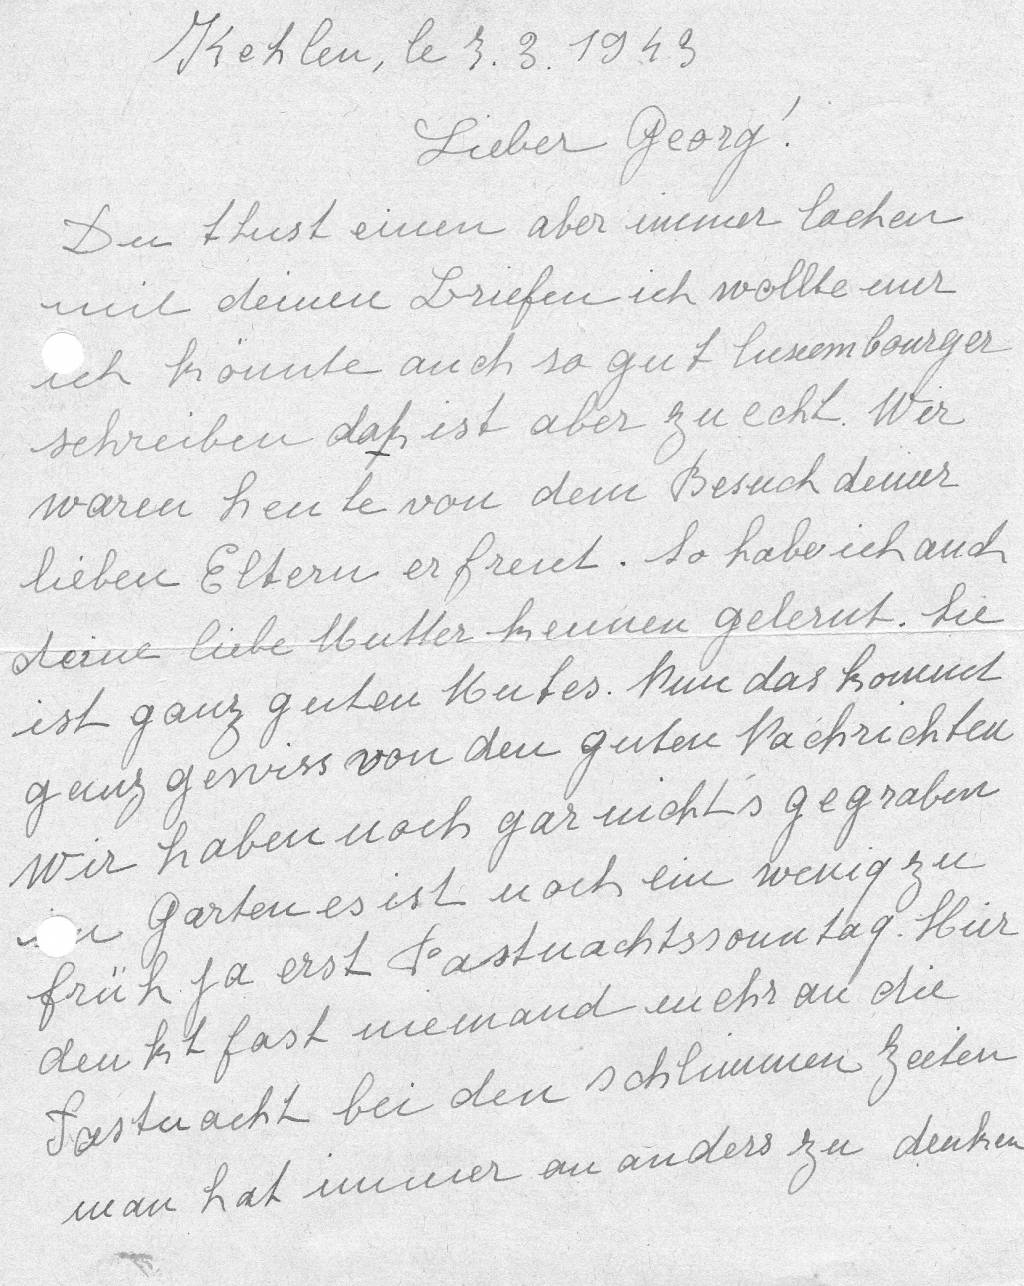 Kehlen, le 7.3.1943
Lieber Georg!
Du thust einen aber immer lachen
mit deinen Briefen ich wollte nur
ich könnte auch so gut luxembourger
schreiben daß ist aber zu echt. Wir
waren heute von dem Besuch deiner
lieben Eltern erfreut. So habe ich auch
deine liebe Mutter kennen gelernt. Sie
ist ganz guten Mutes. Nun das kommt
ganz gewiss von den guten Nachrichten
Wir haben noch gar nicht's gegraben
im Garten es ist noch ein wenig zu
früh ja erst Fastnachtssonntag. Hier
denkt fast niemand mehr an die
Fastnacht bei den schlimmen Zeiten
man hat immer an anders zu denken